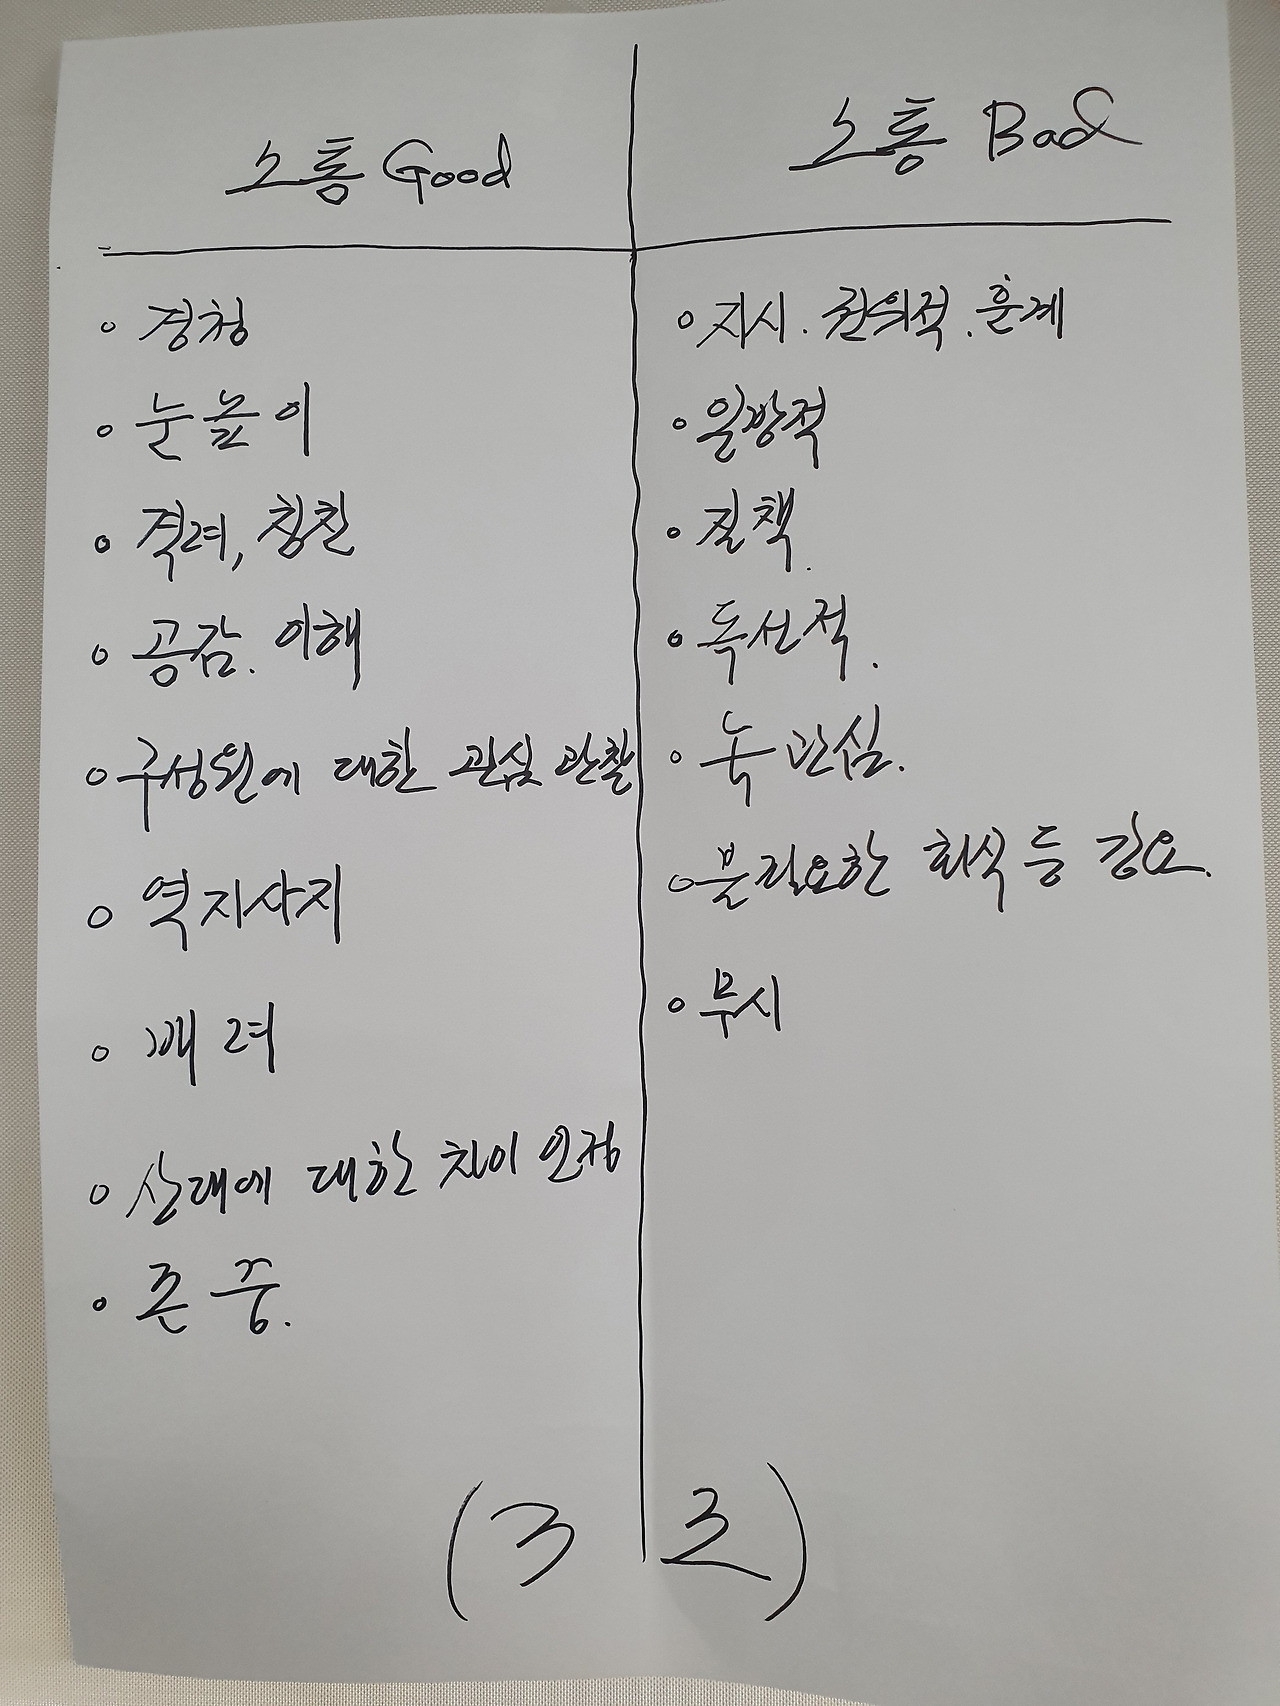 소통 Good
경청
눈높이
격려, 칭찬
공감. 이해
구성원에 대한 관심 관찰
역지사지
배려
상대에 대한 차이 인정
존중.
소통 Bad
지시. 권위적. 훈계
일방적
질책.
독선적.
관심.
불필요한 회식 등 강요.
무시
(3조)